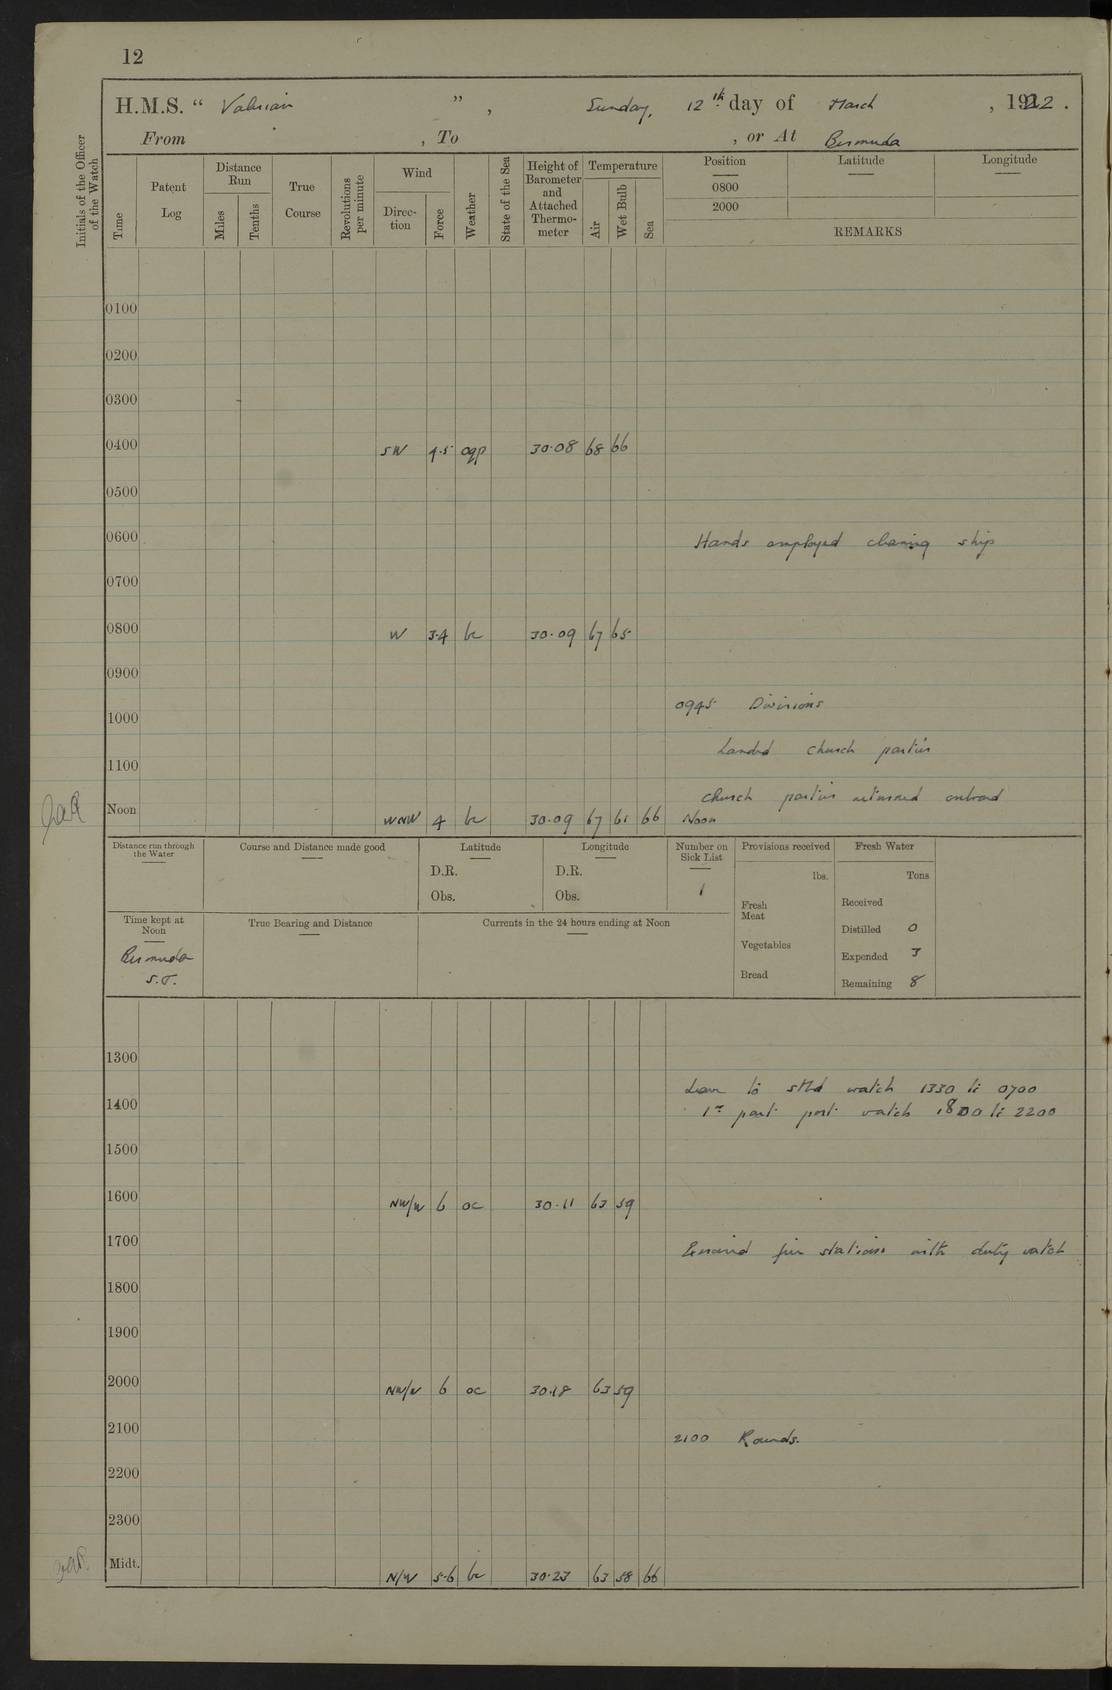 12
H.M.S. “ Valerian ” , Sunday, 12th day of March , 1922 .
From , To , or At Bermuda
Initials of the Officer of the Watch
Time
Patent Log
Distance Run
Miles
Tenths
True Course
Revolutions per minute
Wind
Direction
Force
Weather
State of the Sea
Height of Barometer and Attached Thermometer
Temperature
Air
Wet Bulb
Sea
Position Latitude Longitude
0800
2000
REMARKS
0100
0200
0300
0400 SW 4.5 ogp 30.08 68 66
0500
0600 Hands employed cleaning ship
0700
0800 W 3.4 bc 30.09 67 65
0900
0945 Divisions
1000
Landed church parties
1100
church parties returned onboard
Noon WNW 4 bc 30.09 67 61 66 Noon
Distance run through the Water
Course and Distance made good
Latitude
D.R.
Obs.
Longitude
D.R.
Obs.
Number on Sick List
1
Provisions received
lbs.
Fresh Meat
Vegetables
Bread
Fresh Water
Tons
Received
Distilled 0
Expended 3
Remaining 8
Time kept at Noon
Bermuda
S.T.
True Bearing and Distance
Currents in the 24 hours ending at Noon
1300
Leave to stbd watch 1330 to 0700
1400
1st part port watch 1800 to 2200
1500
1600 NW/W 6 oc 30.11 63 59
1700 Exercised fire stations with duty watch
1800
1900
2000 NW/W 6 oc 30.18 63 59
2100 2100 Rounds.
2200
2300
Midt. N/W 5-6 bc 30.23 63 58 66